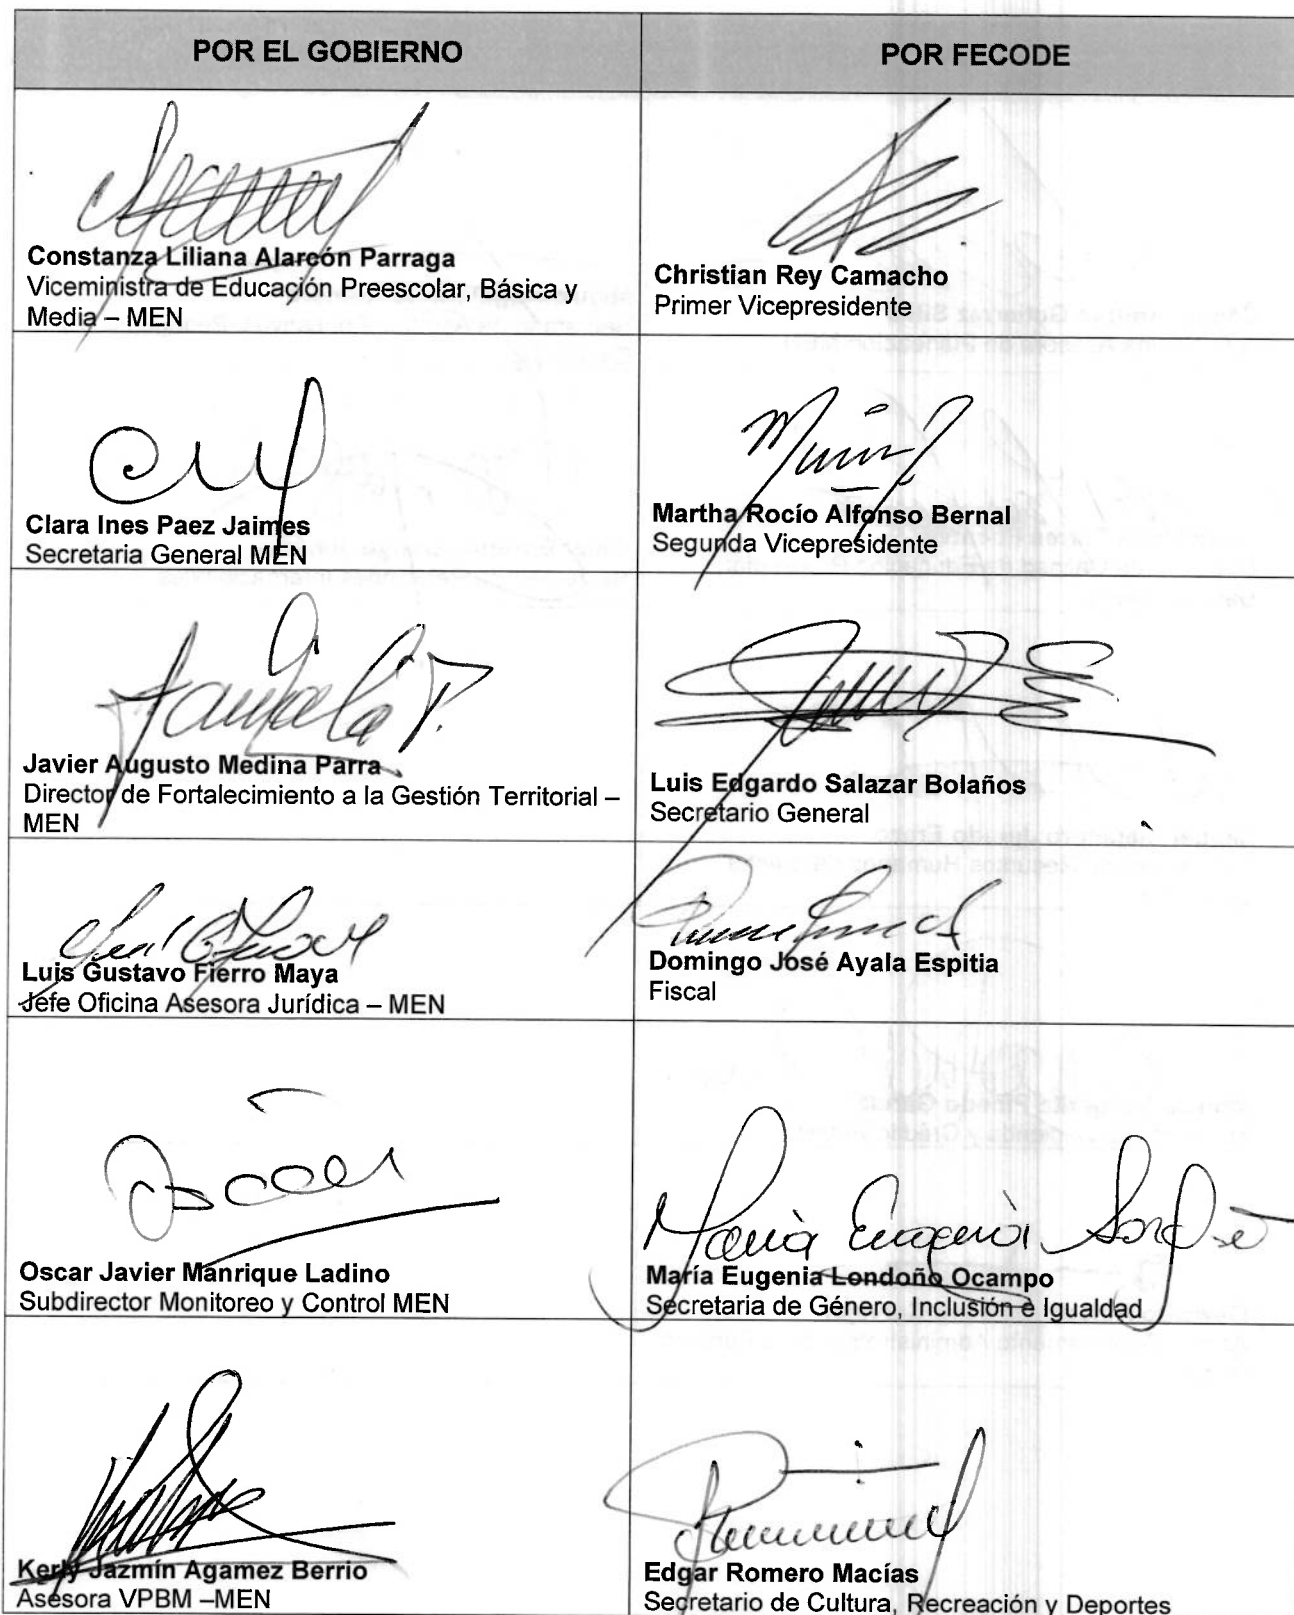 POR EL GOBIERNO
POR FECODE
Constanza Liliana Alarcón Parraga
Viceministra de Educación Preescolar, Básica y
Media – MEN
Christian Rey Camacho
Primer Vicepresidente
Clara Ines Paez Jaimes
Secretaria General MEN
Martha Rocío Alfonso Bernal
Segunda Vicepresidente
Javier Augusto Medina Parra
Director de Fortalecimiento a la Gestión Territorial –
MEN
Luis Edgardo Salazar Bolaños
Secretario General
Luis Gustavo Fierro Maya
Jefe Oficina Asesora Jurídica – MEN
Domingo José Ayala Espitia
Fiscal
Oscar Javier Manrique Ladino
Subdirector Monitoreo y Control MEN
María Eugenia
María Eugenia Londoño Ocampo
Secretaria de Género, Inclusión e Igualdad
Kerly Jazmín Agamez Berrio
Asesora VPBM –MEN
Edgar Romero Macías
Secretario de Cultura, Recreación y Deportes